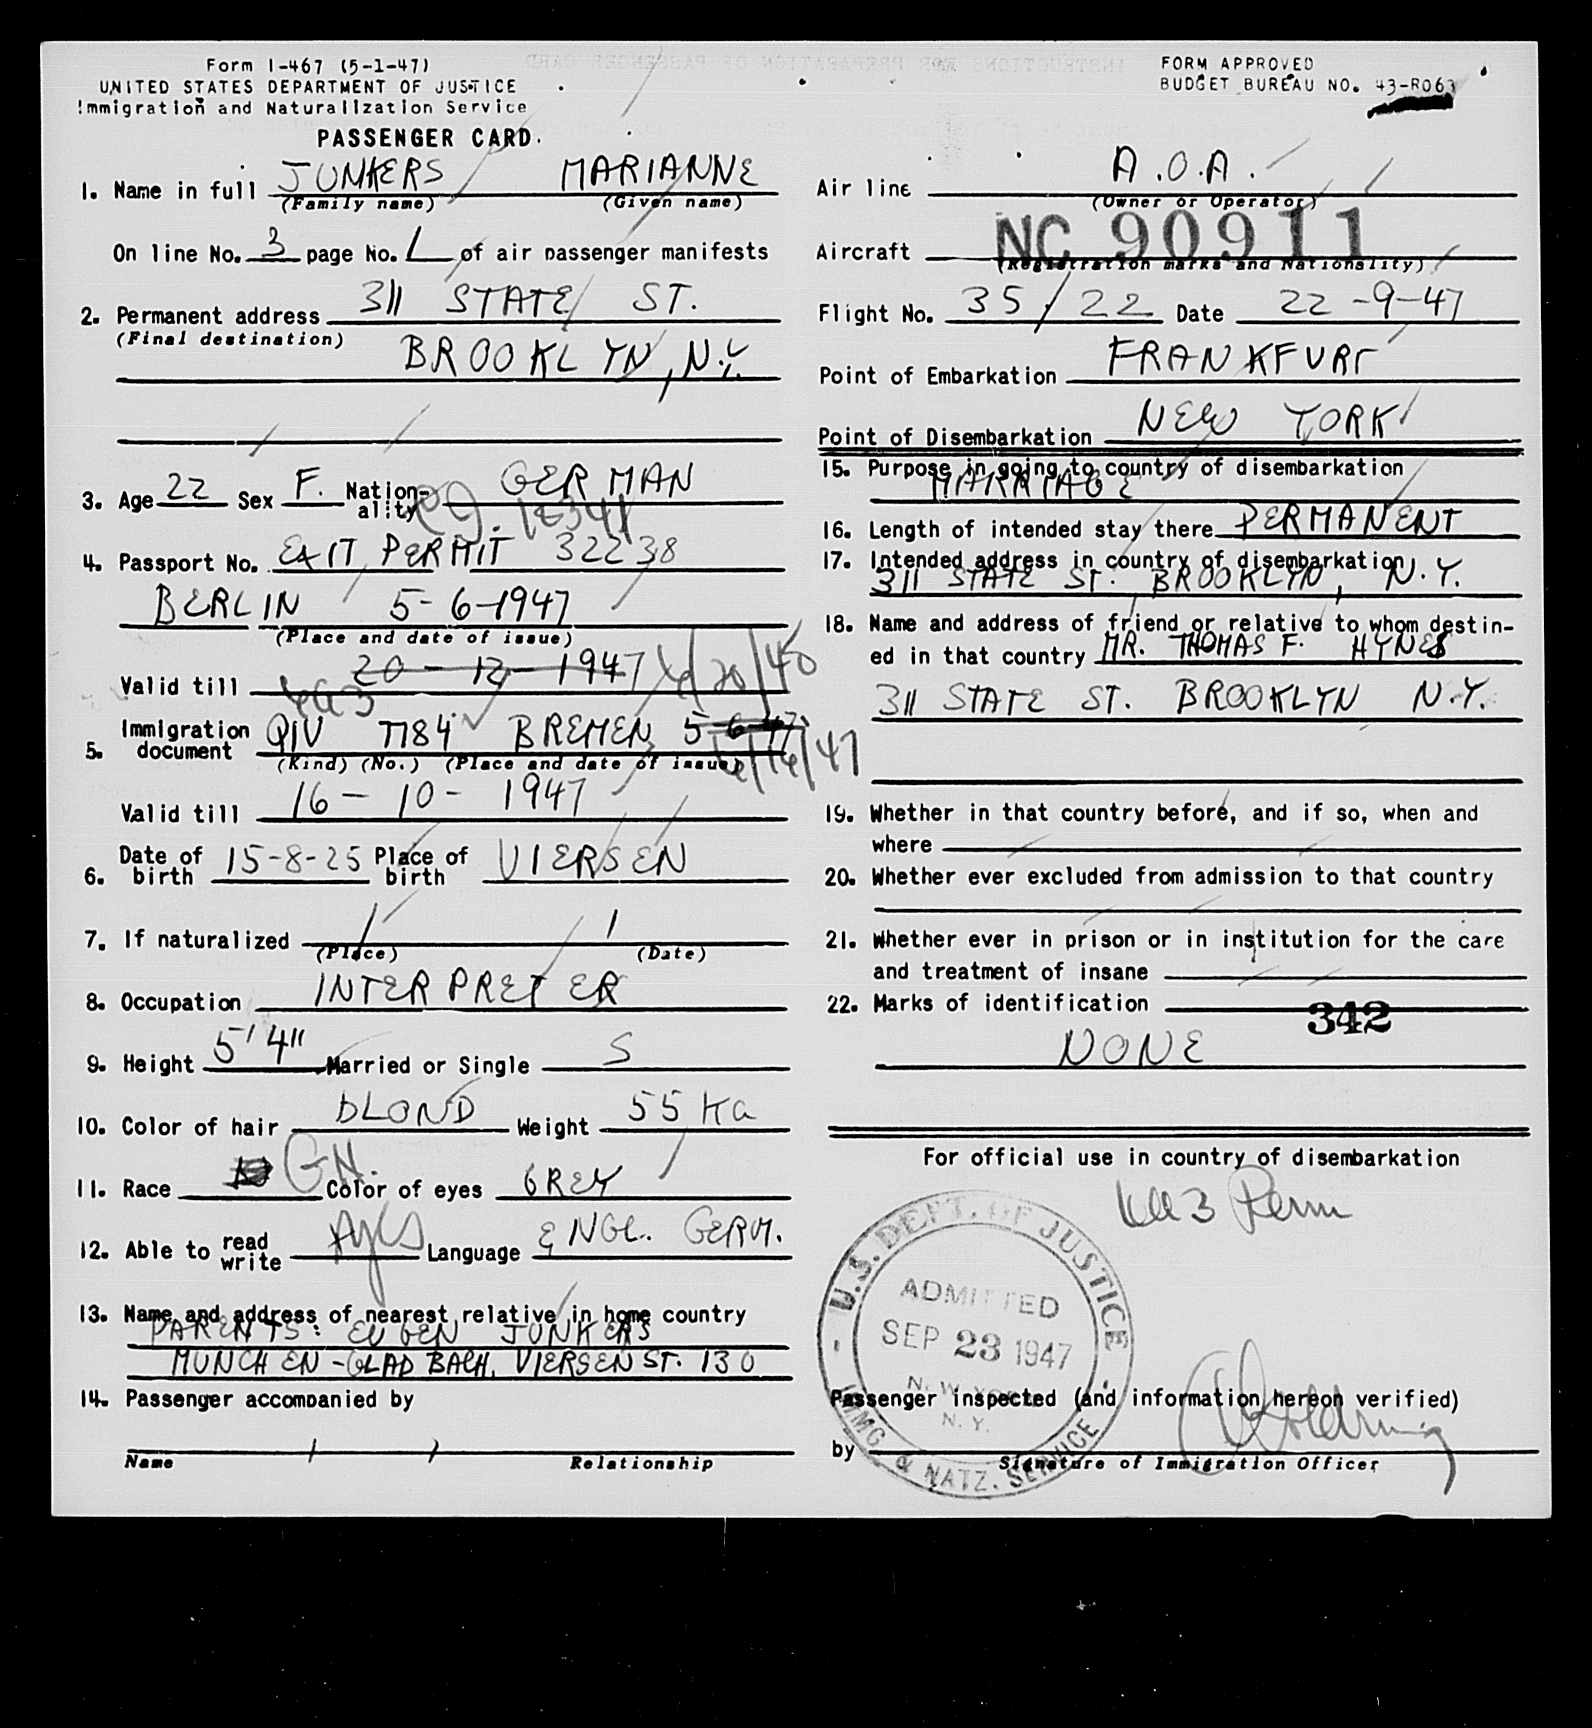 Form I-467 (5-1-47)
UNITED STATES DEPARTMENT OF JUSTICE
Immigration and Naturalization Service
PASSENGER CARD.
1. Name in full JUNKERS MARIANNE
(Family name) (Given name)
On line No. 3 page No. 1 of air passenger manifests
2. Permanent address 311 STATE ST.
(Final destination) BROOKLYN, N.Y.
3. Age 22 Sex F. Nationality GERMAN
4. Passport No. EXIT PERMIT 32238
BERLIN 5-6-1947
(Place and date of issue)
Valid till 20-12-1947
5. Immigration document QIV 7784 BREMEN 5-6-47
(Kind) (No.) (Place and date of issue) 6/16/47
Valid till 16-10-1947
6. Date of birth 15-8-25 Place of birth VIERSEN
7. If naturalized / /
(Place) (Date)
8. Occupation INTERPRETER
9. Height 5'4" Married or Single S
10. Color of hair BLOND Weight 55 KG
11. Race GN. Color of eyes GREY
12. Able to read write Language ENGL. GERM.
13. Name and address of nearest relative in home country
PARENTS: EUGEN JUNKERS
MUNCHEN-GLADBACH, VIERSENST. 130
14. Passenger accompanied by
Name Relationship
FORM APPROVED
BUDGET BUREAU NO. 43-R063
Air line A.O.A.
(Owner or Operator)
Aircraft NC 90911
(Registration marks and Nationality)
Flight No. 35/22 Date 22-9-47
Point of Embarkation FRANKFURT
Point of Disembarkation NEW YORK
15. Purpose in going to country of disembarkation
MARRIAGE
16. Length of intended stay there PERMANENT
17. Intended address in country of disembarkation
311 STATE ST. BROOKLYN, N.Y.
18. Name and address of friend or relative to whom destin-
ed in that country MR. THOMAS F. HYNES
311 STATE ST. BROOKLYN N.Y.
19. Whether in that country before, and if so, when and
where
20. Whether ever excluded from admission to that country
21. Whether ever in prison or in institution for the care
and treatment of insane
22. Marks of identification
342
NONE
For official use in country of disembarkation
4a3 Perm
U.S. DEPT. OF JUSTICE
ADMITTED
SEP 23 1947
N.Y.
IMMG. & NATZ. SERVICE
Passenger inspected (and information hereon verified)
by
Signature of Immigration Officer